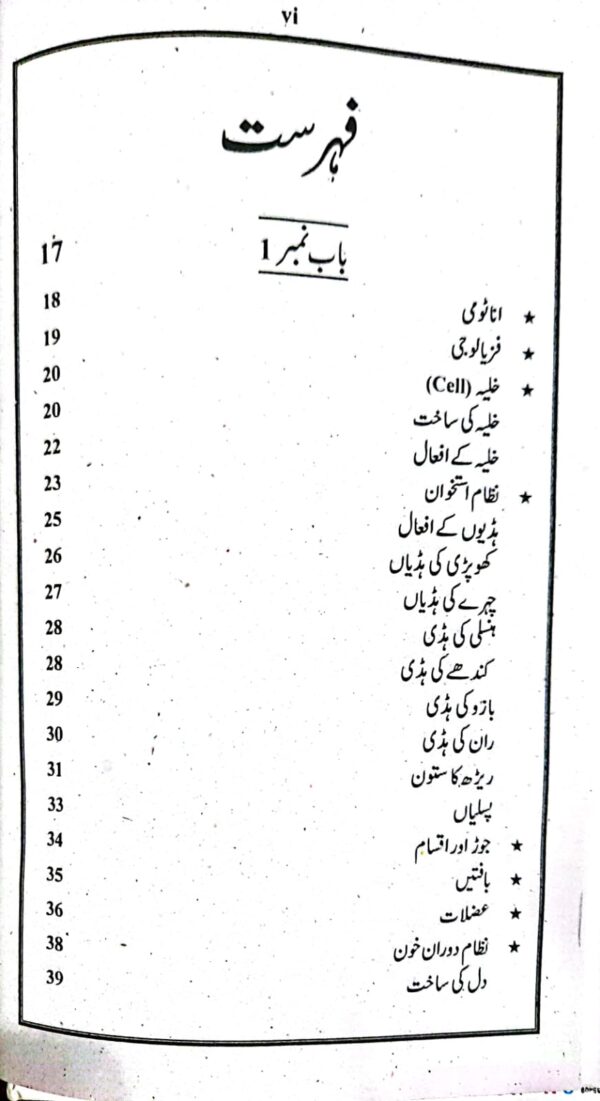 vi
فہرست
باب نمبر 1 17
★ اناٹومی 18
★ فزیالوجی 19
★ خلیہ (Cell) 20
خلیہ کی ساخت 20
خلیہ کے افعال 22
★ نظام استخوان 23
ہڈیوں کے افعال 25
کھوپڑی کی ہڈیاں 26
چہرے کی ہڈیاں 27
ہنسلی کی ہڈی 28
کندھے کی ہڈی 28
بازو کی ہڈی 29
ران کی ہڈی 30
ریڑھ کا ستون 31
پسلیاں 33
★ جوڑ اور اقسام 34
★ بافتیں 35
★ عضلات 36
★ نظام دوران خون 38
دل کی ساخت 39